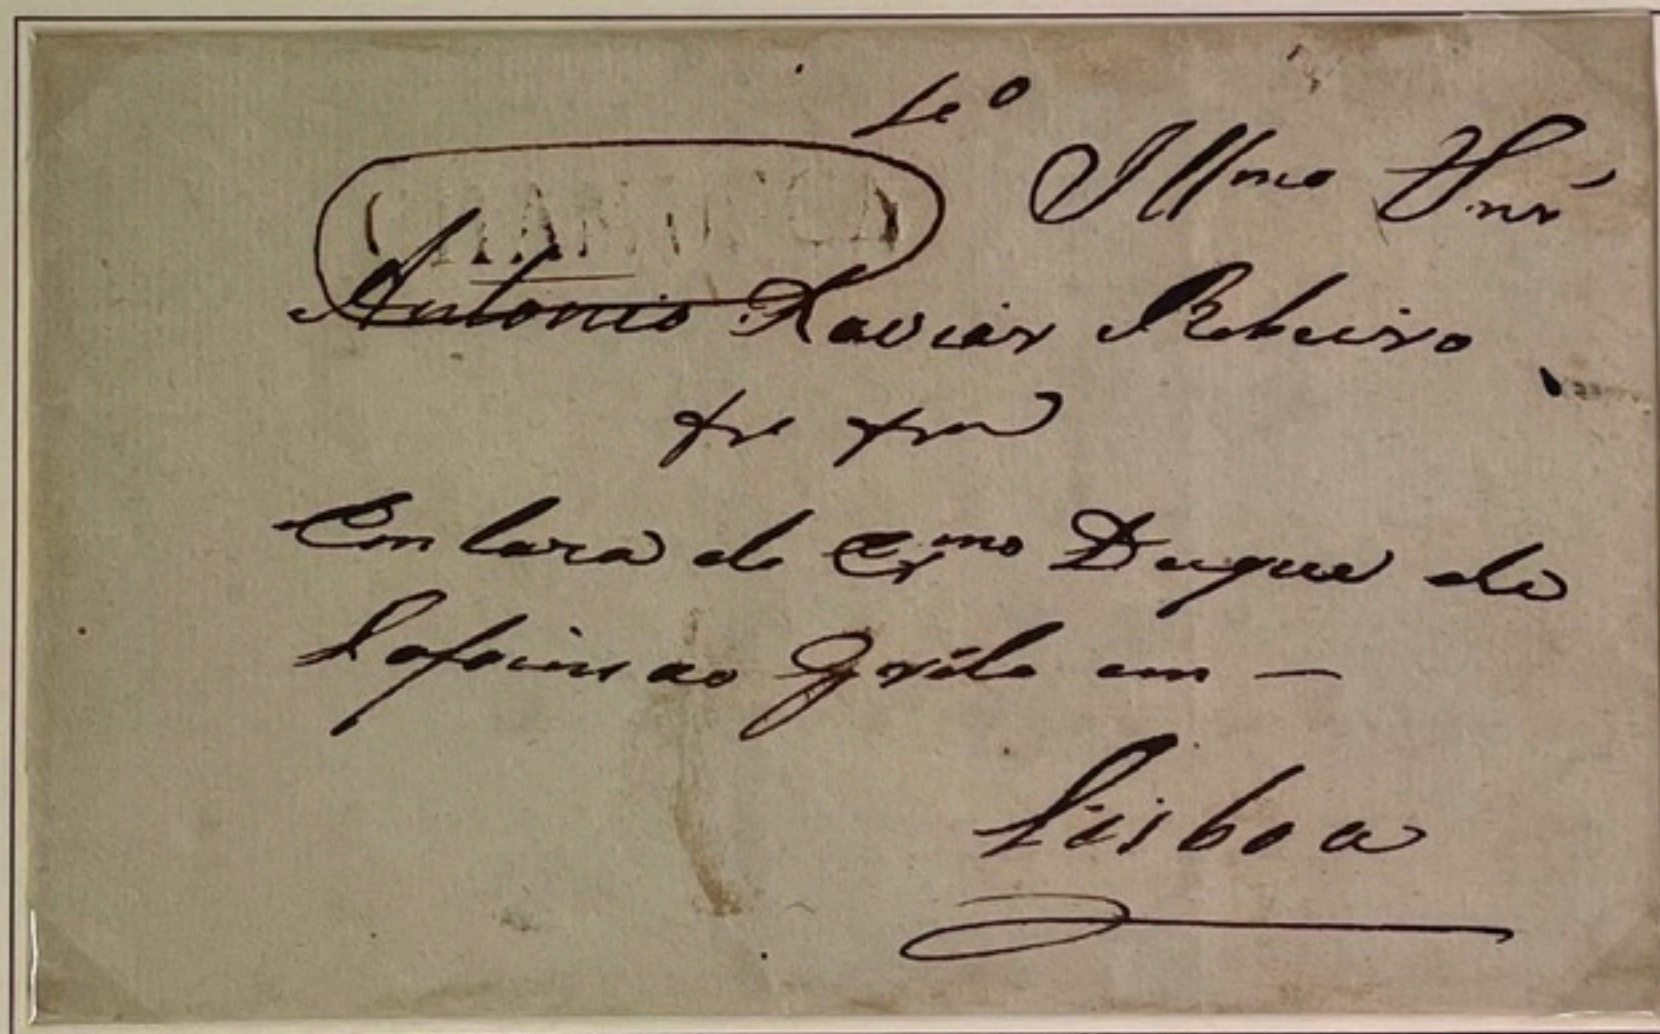 Illmo Snr
Antonio Xavier Ribeiro
Em Caza do Exmo Duque de
Lafoins ao Grilo em —
Lisboa